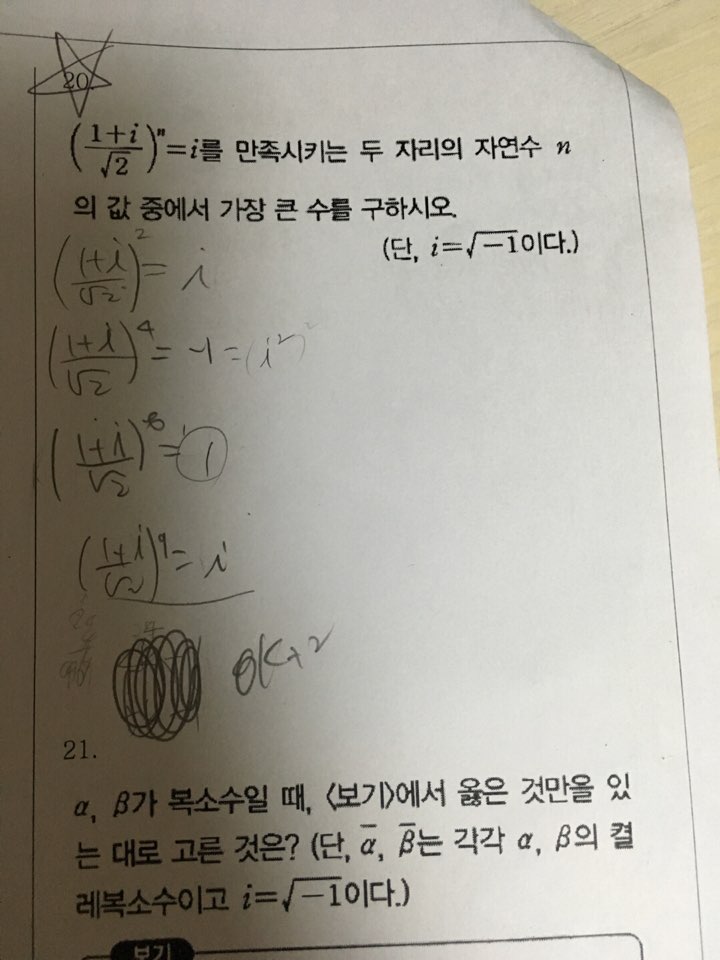 20.
(1+i/√2)ⁿ=i를 만족시키는 두 자리의 자연수 n
의 값 중에서 가장 큰 수를 구하시오.
(단, i=√-1이다.)
(1+i/√2)² = i
(1+i/√2)⁴ = -1 = (i²)²
(1+i/√2) = 1
(1+i/√2)⁹ = i
K+2
21.
α, β가 복소수일 때, <보기>에서 옳은 것만을 있
는 대로 고른 것은? (단, ᾱ, β̄는 각각 α, β의 켤
레복소수이고 i=√-1이다.)
보기